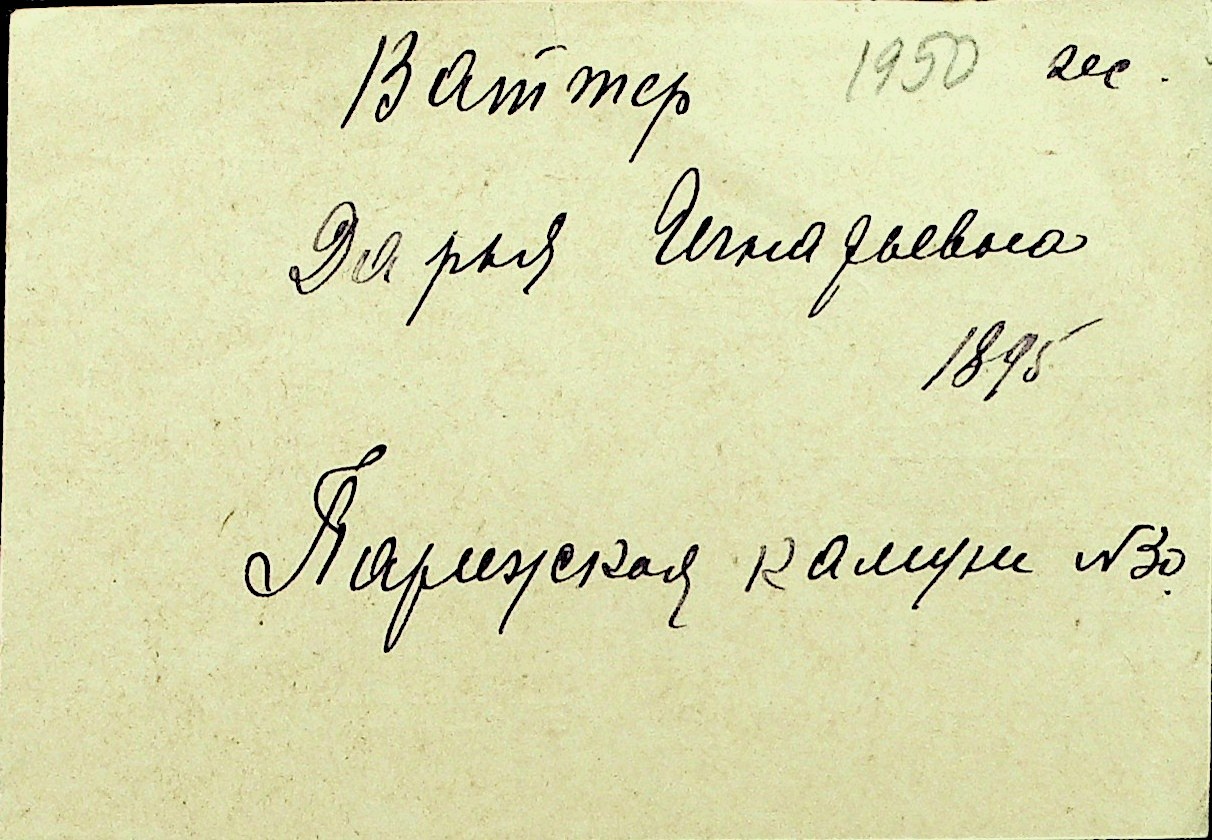 Ваттер 1950
Дарья Игнатьевна
1895
Парижская камуни №30